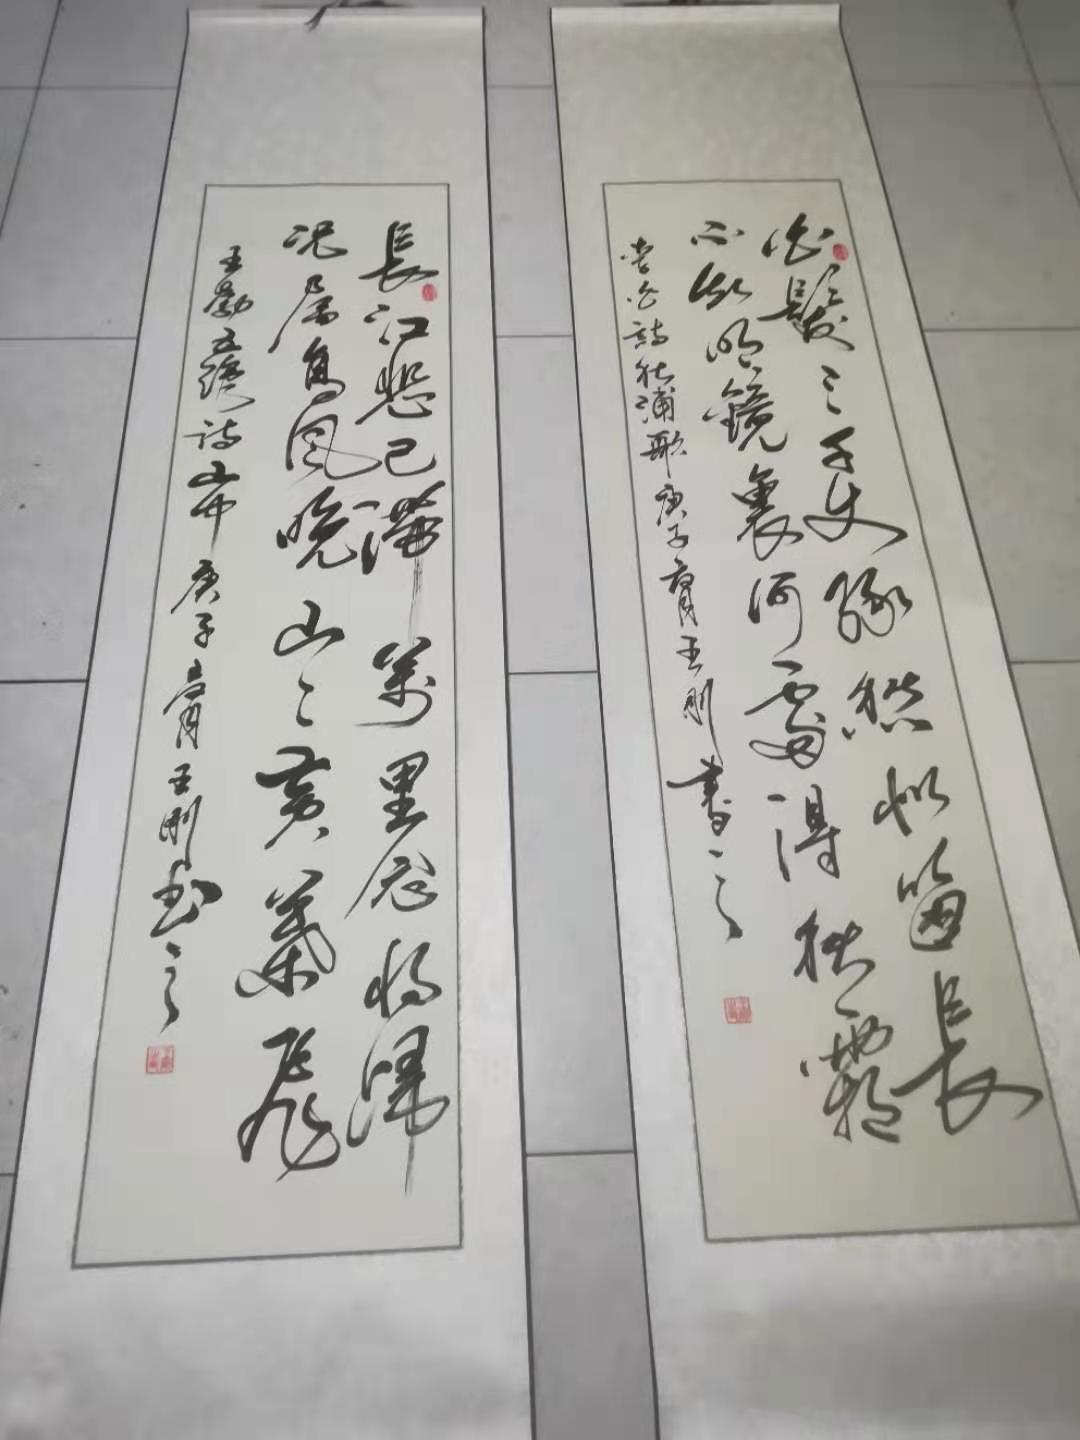 白髮三千丈緣愁似箇長
不知明鏡裏何處得秋霜
李白詩秋浦歌庚子王刚書之
長江悲已滯萬里念將歸
況屬高風晚山〻黃葉飛
王勃五绝诗山中庚子王刚书之